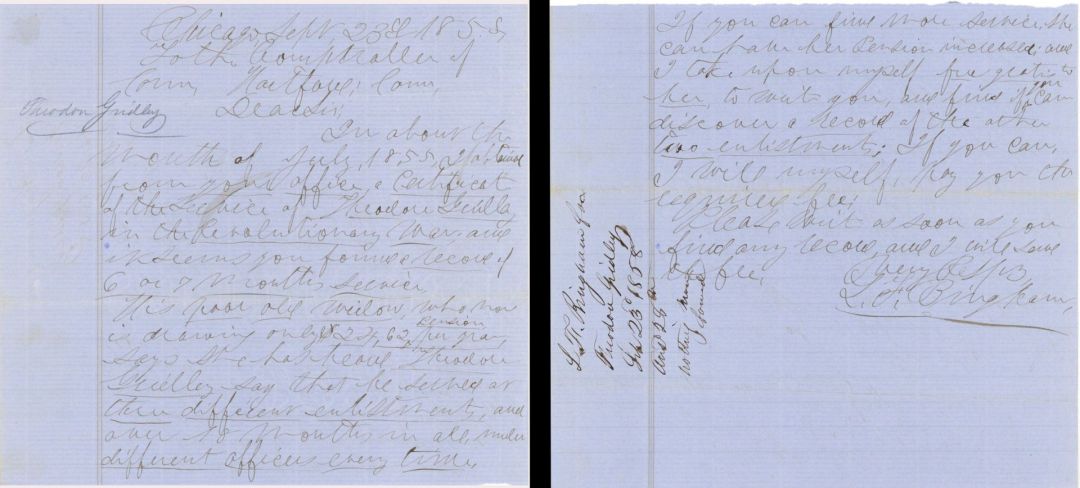 Chicago, Sept 23d 1858,
To the Comptroller of
Conn, Hartford; Conn,
Dear Sir,
Theodore Gridley
In about the
Month of July, 1855, I obtained
from your office, a Certificate
of the service of Theodore Gridley
in the Revolutionary War, and
it seems you found a record of
6 or 7 Months service
His poor old Widow, who now
is drawing only $24,62 Pension per year
says she has heard Theodore
Gridley say that he served at
three different enlistments, and
over 18 Months in all, under
different officers every time,
If you can find more service, she
can have her Pension increased, and
I take upon myself free gratis to
her, to write you, and find if you can
discover a record of the other
two enlistments; If you can,
I will myself, pay you the
required fee;
Please write as soon as you
find any record, and I will send
the fee,
Very Respy
L. F. Bingham,
L. F. Bingham for
Theodore Gridley
23d 1858
Ansd 25
nothing more
found